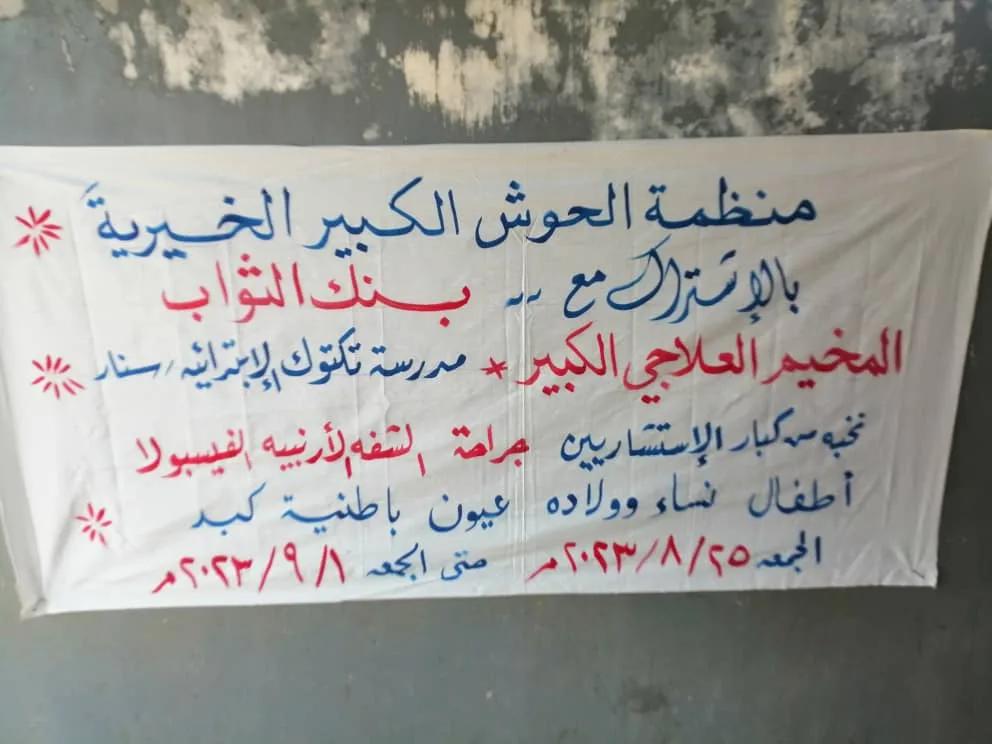 منظمة الحوش الكبير الخيرية
بالإشتراك مع .. بنك الثواب
المخيم العلاجي الكبير * مدرسة تكتوك الإبتدائيه / سنار
نخبه من كبار الإستشاريين جراحة الشفه الأرنبيه الفيسيولا
أطفال نساء وولاده عيون باطنية كبد
الجمعه ٢٠٢٣/٨/٢٥م حتى الجمعه ٢٠٢٣/٩/١م